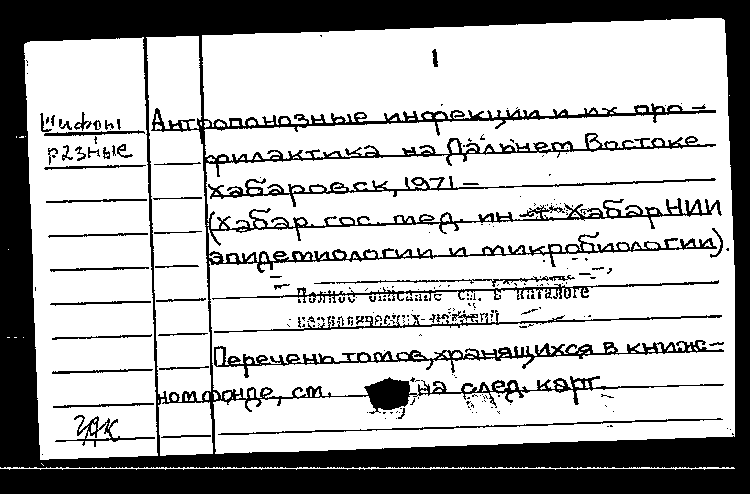 1
Шифры
разные
Антропонозные инфекции и их про-
филактика на Дальнем Востоке
Хабаровск, 1971-
(Хабар. гос. мед. ин-т. ХабарНИИ
эпидемиологии и микробиологии).
Полное описание см. в каталоге
периодических изданий
Перечень томов, хранящихся в книж-
ном фонде, см. на след. карт.